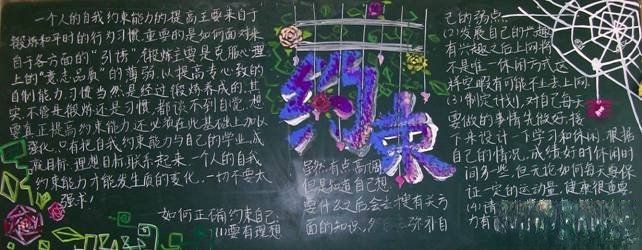 一个人的自我约束能力的提高主要来自于
锻炼和平时的行为习惯,重要的是如何面对来
自于各方面的“引诱”,锻炼主要是克服心理
上的“意志品质”的薄弱,以提高专心致的
自制能力,习惯当然是经过锻炼养成的,其
实,不管是锻炼还是习惯,都谈不到自觉,想
要真正提高约束能力,还必须在此基础上加以
强化,只有把自我约束能力与自己的学业,成
就目标,理想目标联系起来,一个人的自我
约束能力才能发生质的变化,一切不要太
强求!
如何正确约束自己:
(1)要有理想
约束
虽然有点高调,
但是知道自己想
要什么之后会主搜有关方
面的知识,
弥补自
己的弱点。
(2)发展自己的兴趣
有兴趣之后上网将
不是唯一休闲方式,这
样空暇有可能不去上网
(3)制定计划,对自己每天
要做的事情先做好,接
下来设计一下学习和休闲,根据
自己的情况,成绩好的休闲时
间多些,但无论如何每天要保
证一定的运动量,健康很重要
(4)请
力有